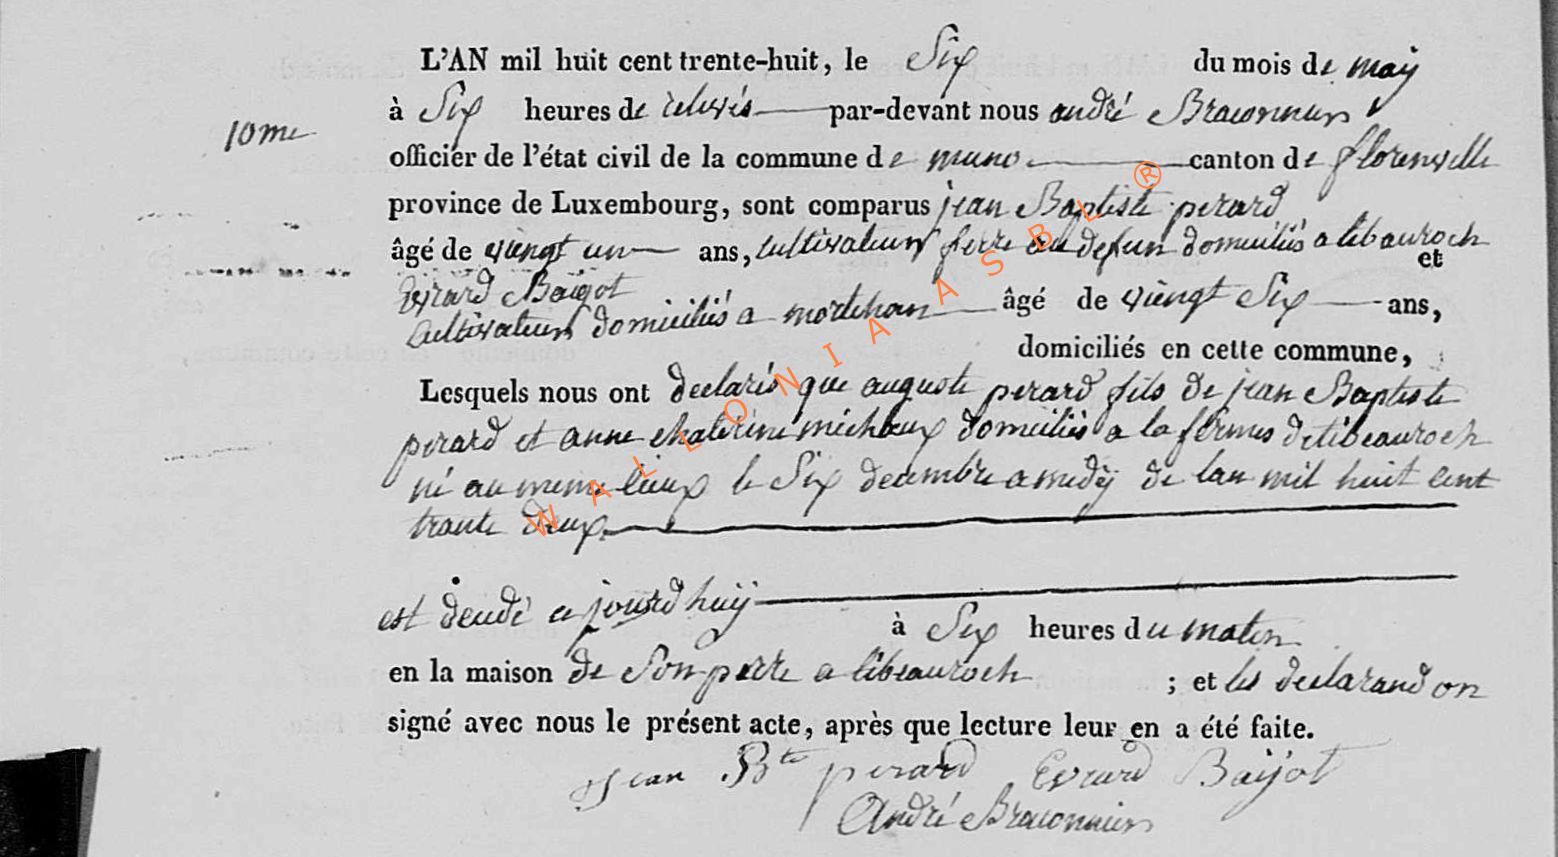 L'AN mil huit cent trente-huit, le Six du mois de may
à Six heures de relevés par-devant nous andré Braconnier
10me
officier de l'état civil de la commune de muno canton de florenville
province de Luxembourg, sont comparus jean Baptiste perard
âgé de viengt un ans, cultivateur frere au defun domiciliés a libauroch
et
Evrard Baijot
cultivateur domiciliés a mortehan âgé de viengt Six ans,
domiciliés en cette commune,
Lesquels nous ont declarés que auguste perard fils de jean Baptiste
perard et anne chaterine michaux domiciliés a la fermes de libeauroch
né au meme lieux le Six decembre a midÿ de lan mil huit cent
trante deux
est deudé ajourdhuij à Six heures du matin
en la maison de Son perre a libeauroch ; et les declarand on
signé avec nous le présent acte, après que lecture leur en a été faite.
Jean Bte perard Evrard Baijot
André Braconnier
WALLONIA ASBL ®